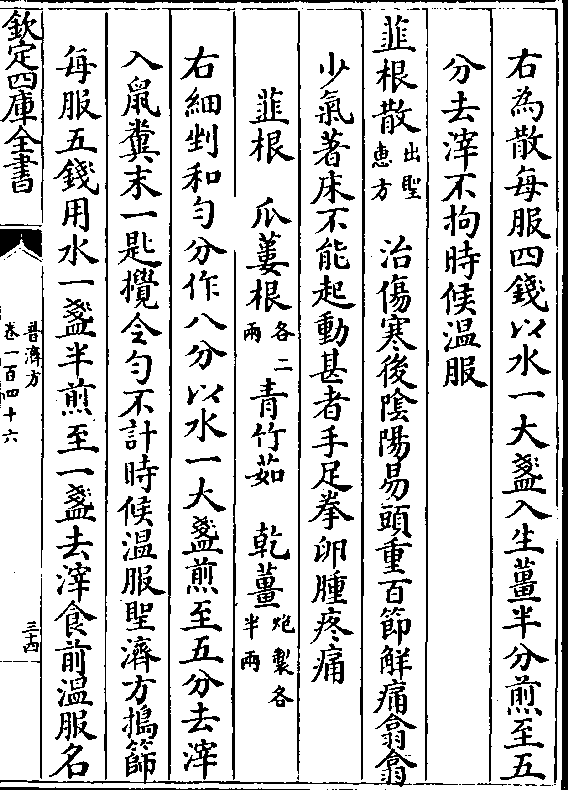 右為散每服四錢以水一大盞入生薑半分煎至五
分去滓不拘時候温服
韭根散出聖惠方 治傷寒後陰陽易頭重百節解痛翕翕
少氣著床不能起動甚者手足拳卵腫疼痛
韭根 瓜蔞根各二兩 青竹茹 乾薑炮製各半兩
右細剉和匀分作八分以水一大盞煎至五分去滓
入鼠糞末一匙攪令匀不計時候温服聖濟方搗篩
每服五錢用水一盞半煎至一盞去滓食前温服名
欽定四庫全書
普濟方
卷一百四十六
三十四